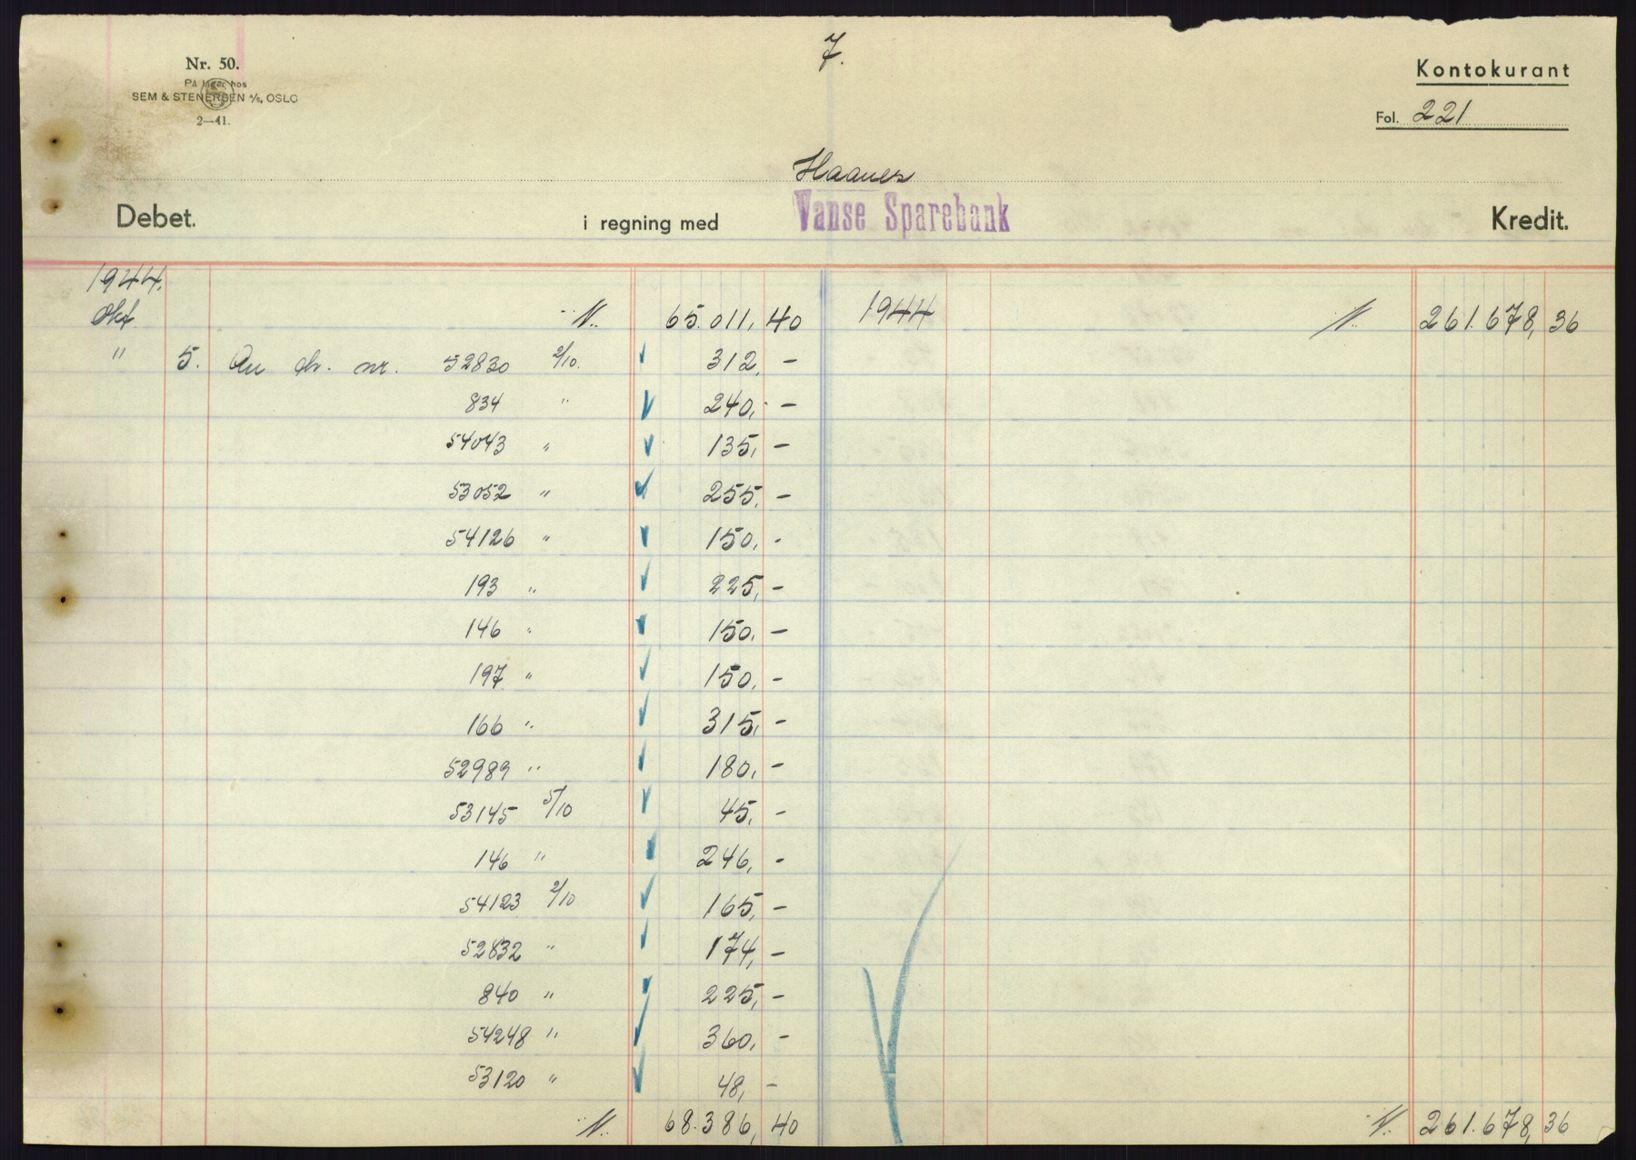 7.
Nr. 50.
På lager hos
SEM & STENERSEN A/S, OSLO
2—41.
Kontokurant
Fol. 221
Haanes
Debet. i regning med Vanse Sparebank Kredit.
1944.
Okt. 65.011,40 1944 261.678,36
" 5. An ch. nr. 52830 2/10. 312,-
834 " 240,-
54043 " 135,-
53052 " 255,-
54126 " 150,-
193 " 225,-
146 " 150,-
197 " 150,-
166 " 315,-
52989 " 180,-
53145 5/10 45,-
146 " 246,-
54123 2/10 165,-
52832 " 174,-
840 " 225,-
54248 " 360,-
53120 " 48,-
68.386,40 261.678,36